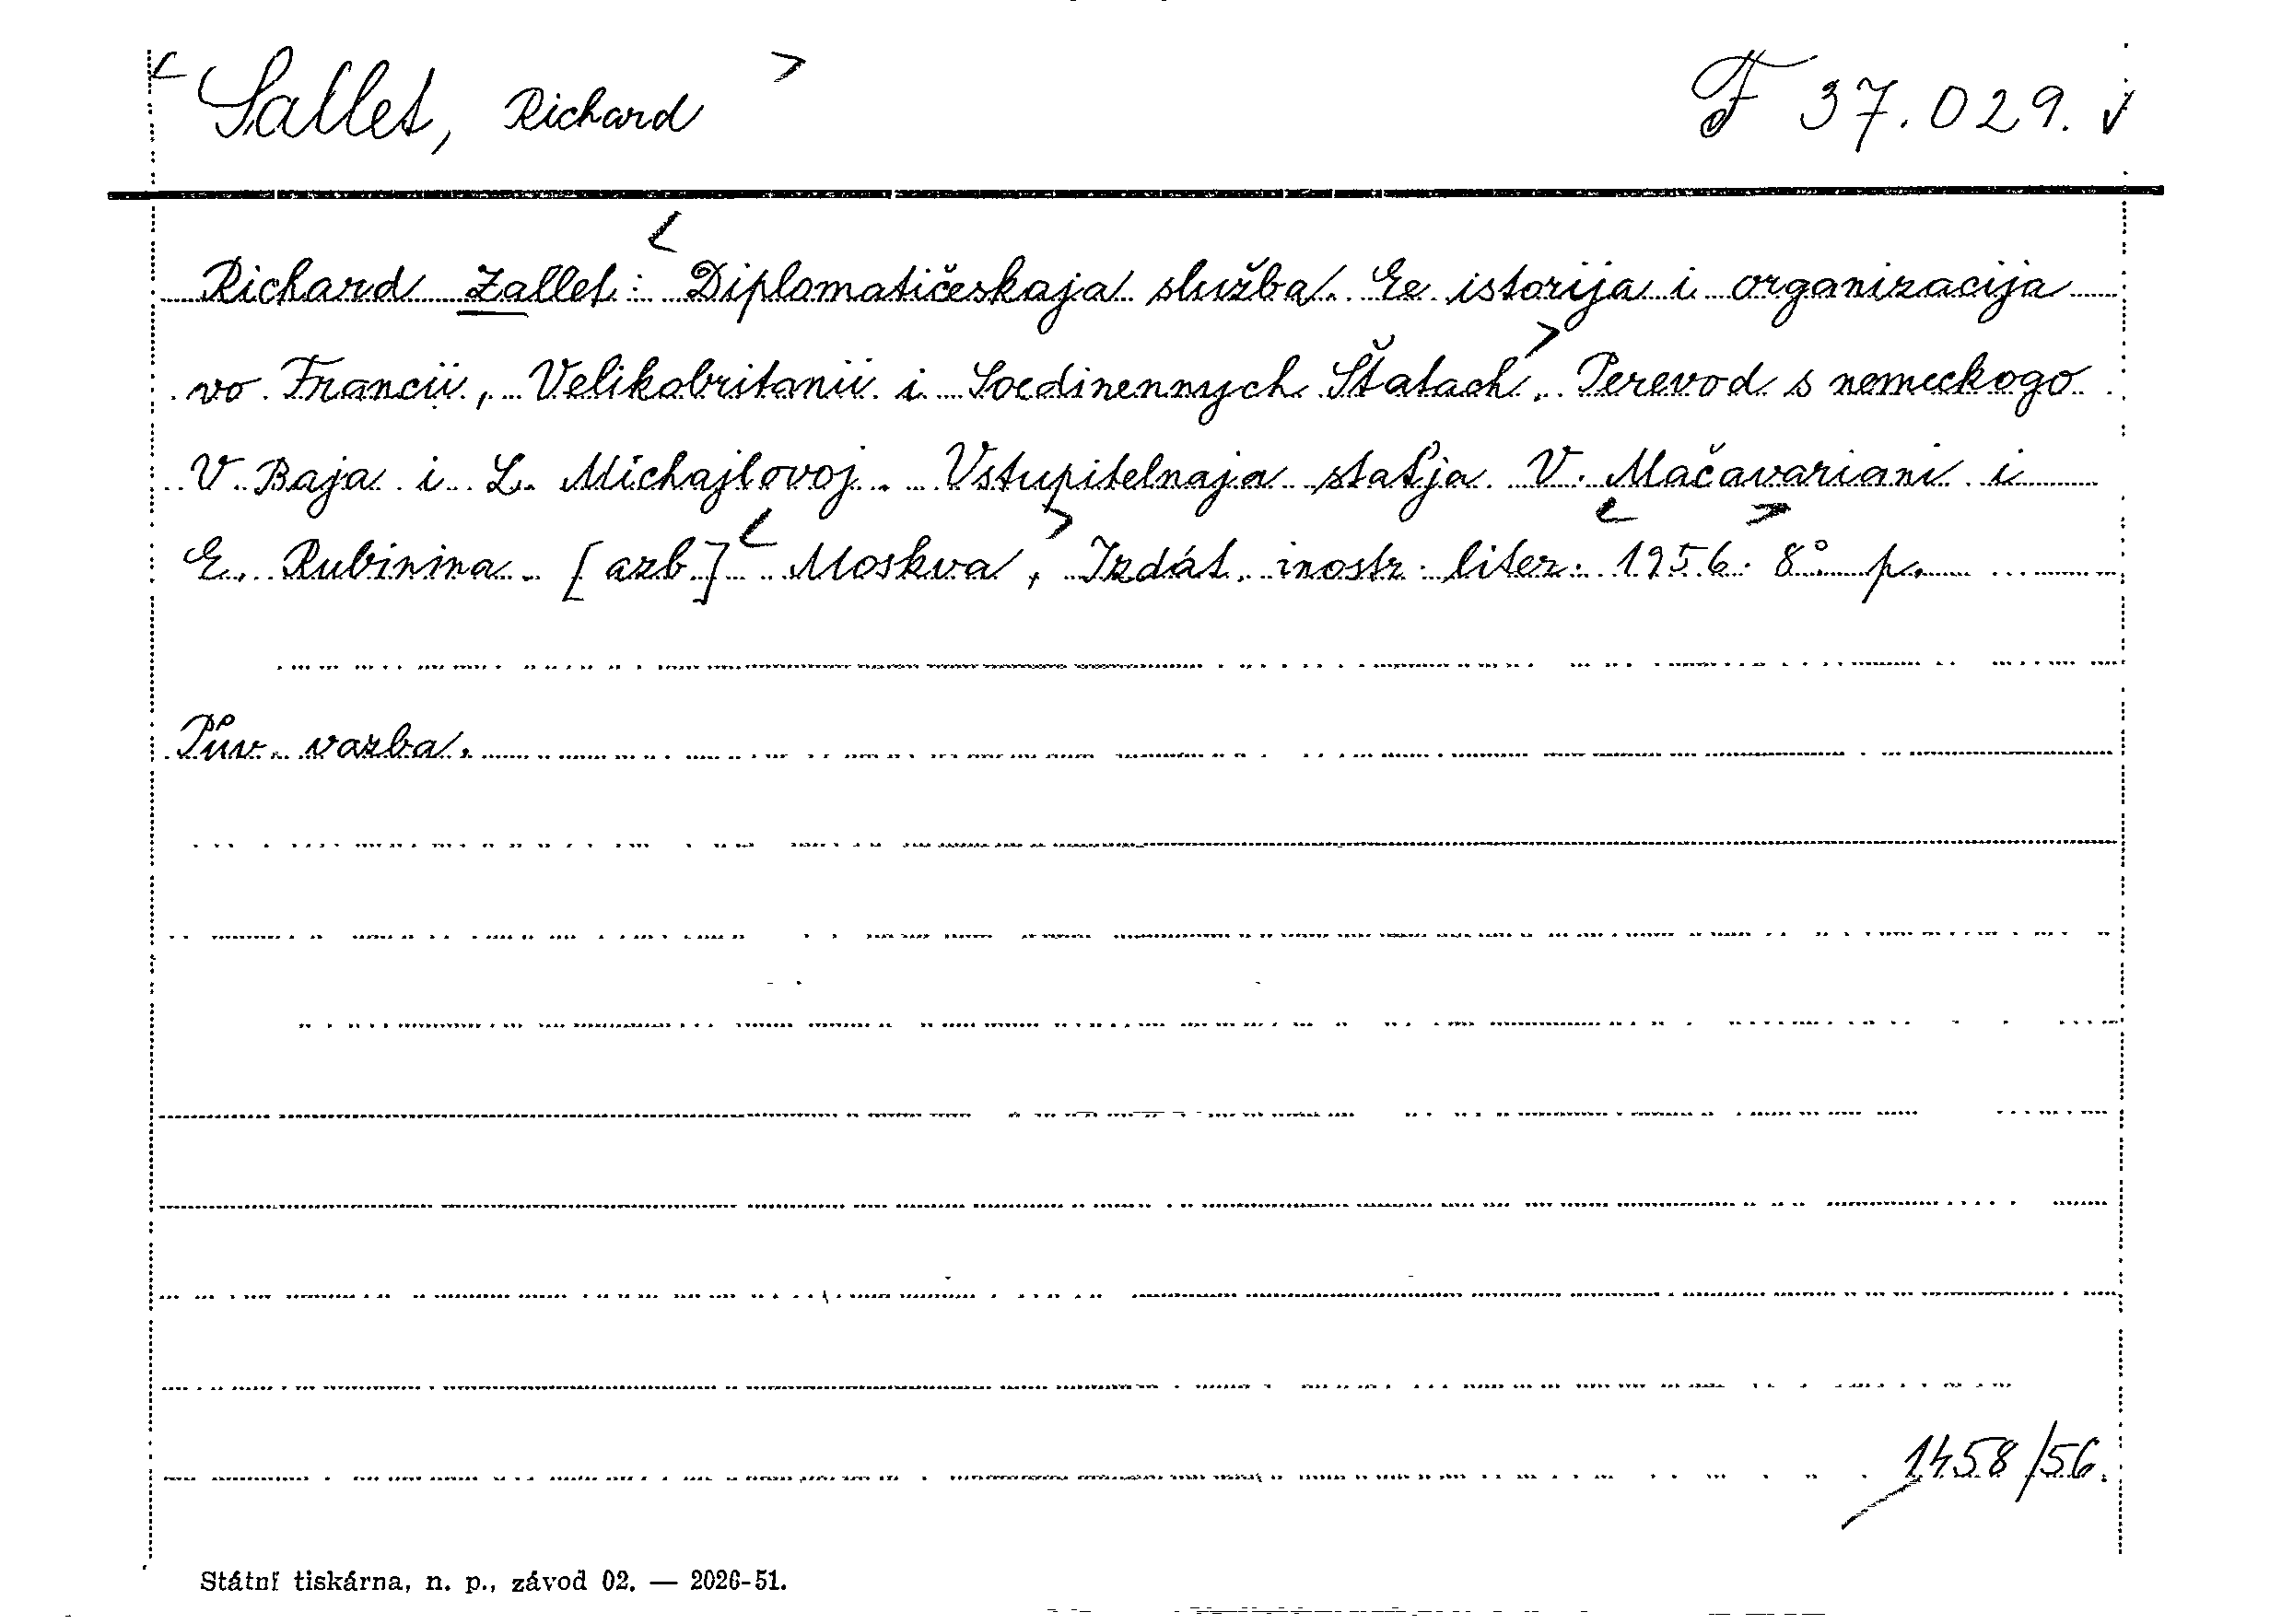 < Sallet, Richard > F 37.029. √
Richard Zallet: < Diplomatičeskaja služba. Ee istorija i organizacija
vo Francii, Velikobritanii i Soedinennych Štatach >. Perevod s nemeckogo
V. Baja i L. Michajlovoj. Vstupitelnaja statja V. Mačavariani i
E. Rubinina. [azb.] < Moskva >, Izdát. inostr. liter. < 1956 >. 8° p.
Pův. vazba.
1458/56.
Státní tiskárna, n. p., závod 02. — 2026-51.